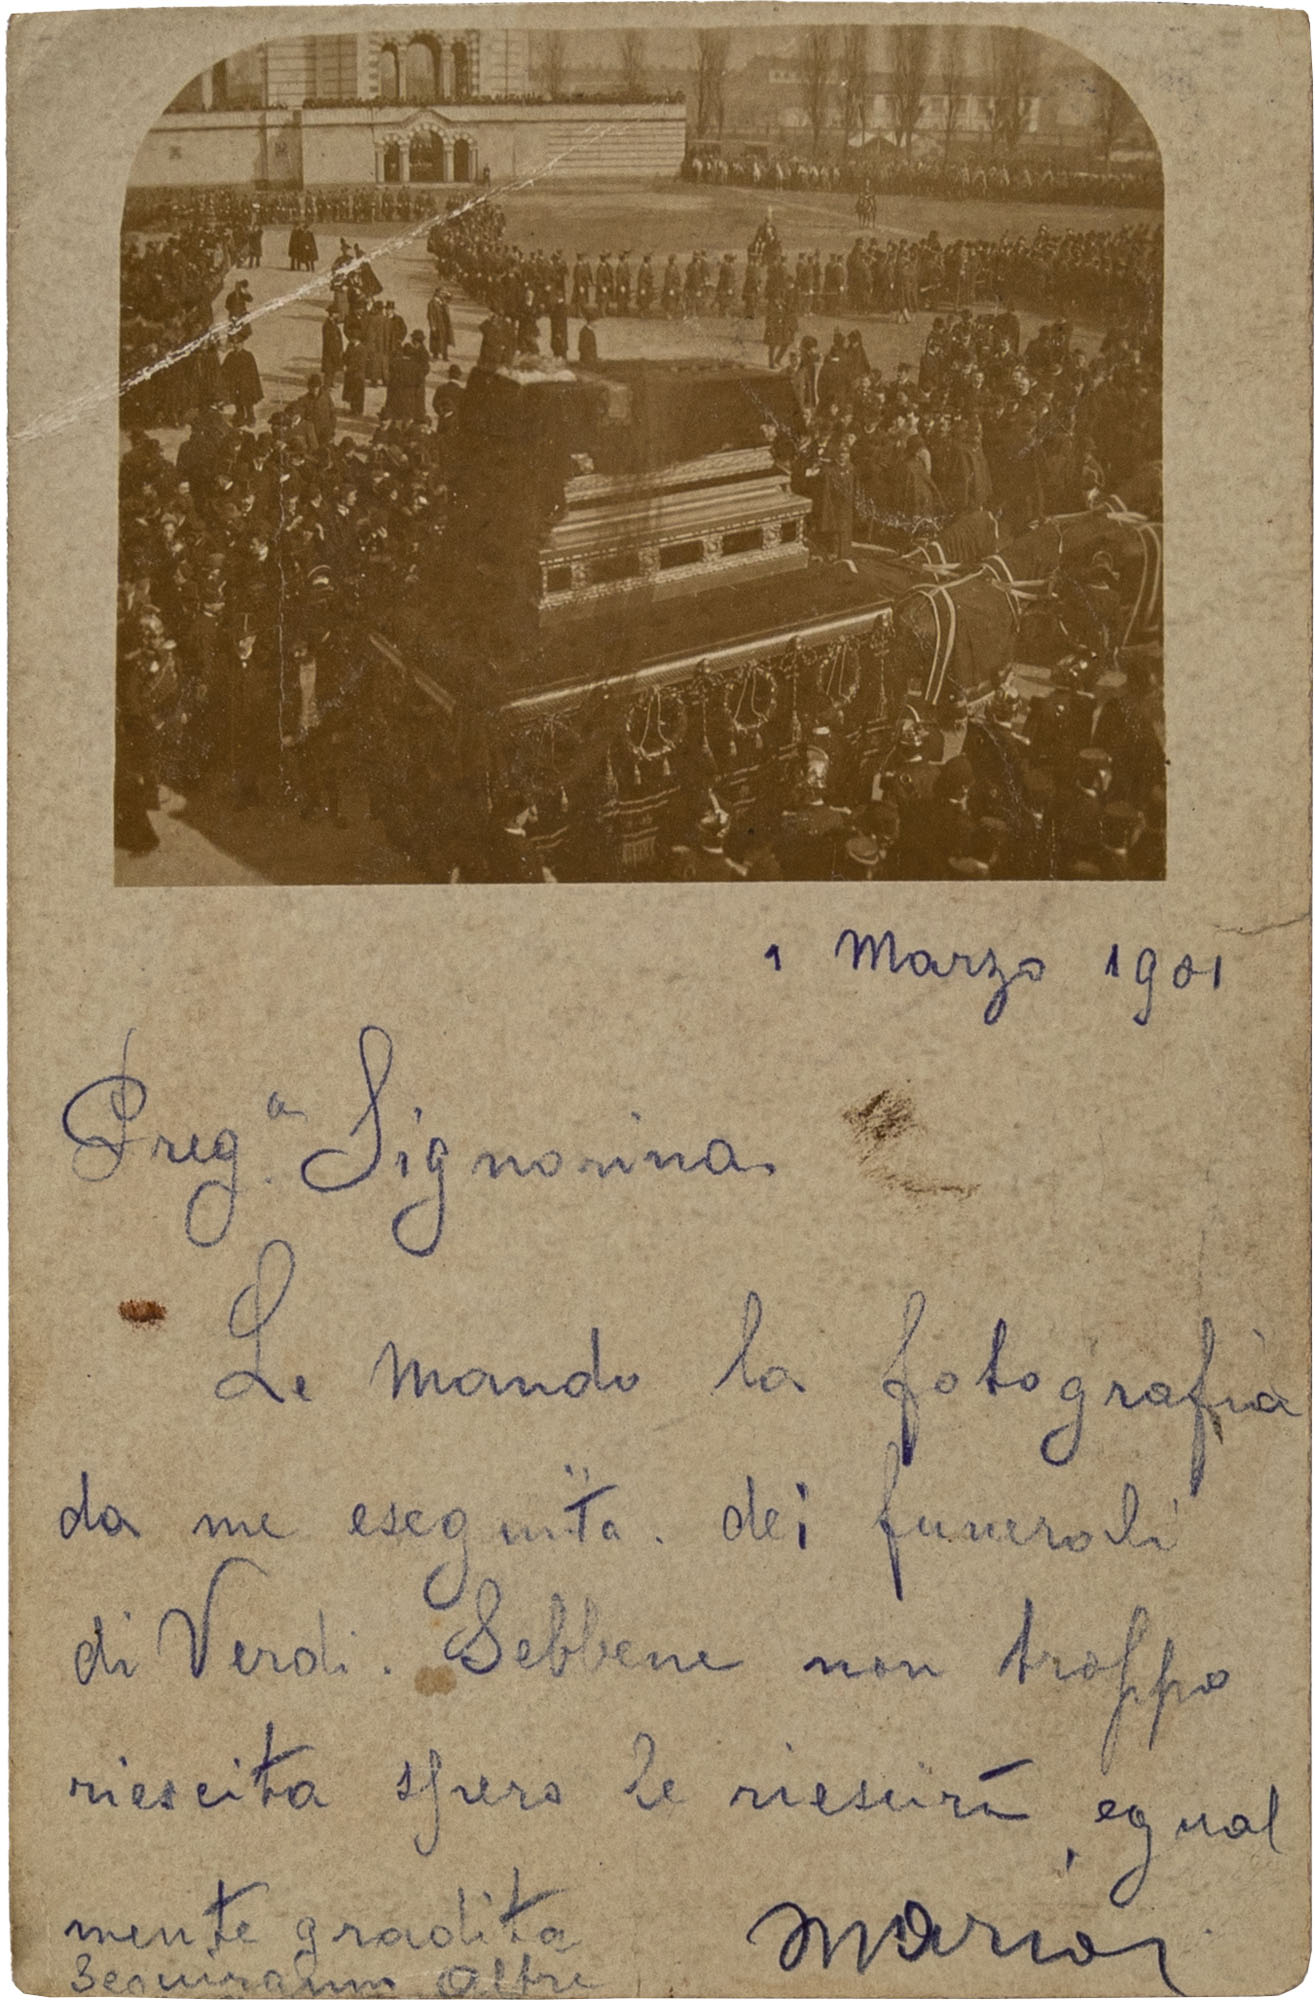 1 Marzo 1901
Preg.a Signorina.
Le mando la fotografia
da me eseguita. dei funerali
di Verdi. Sebbene non troppo
riescita spero le riescirà egual
mente gradita
Seguiranno altre
Mario